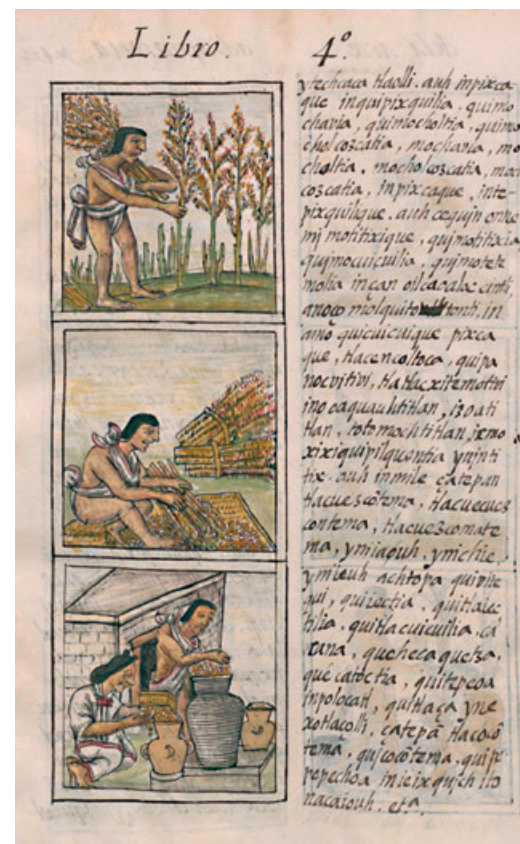 Libro. 4°.
ytechcaca tlaolli. auh inpixca
que inquipixquilia, quimo
chavia, quimocholtia, quimo
cholcozcatia, mochavia, mo
choltia, mocholcozcatia, moc
cozcatia, inpixcaque, inte
pixquilique. auh cequin onne
mj motitixique, quimotitixia
quimocuicuilia, quimotete
molia incan oilcaoaloc cinti,
anoço molquito tonti. in
amo quicuicuique pixca
que, tlacencoltoca, quipa
nocvitivi,
ino oaquauhtitlan, izoati
tlan, totomochtitlan, inmo
xixiquipilquentia yninti
tix. auh inmile catepan
tlacuezcōtema, tlacuecuez
contema, tlacuezcomate
ma, ymiaouh. ymichie
ymieuh achtopa quivite
qui, quiectia. quitlaiec
tilia. quitlacuicuilia. ca
cana, quehecaquetza.
quecatoctia, quitepeoa
inpolocatl, quitlaça yne
xotlacolli, catepā tlacocō
tema, quicocōtema, quipe
pepechoa inieixquich ito
nacaiouh. etª.